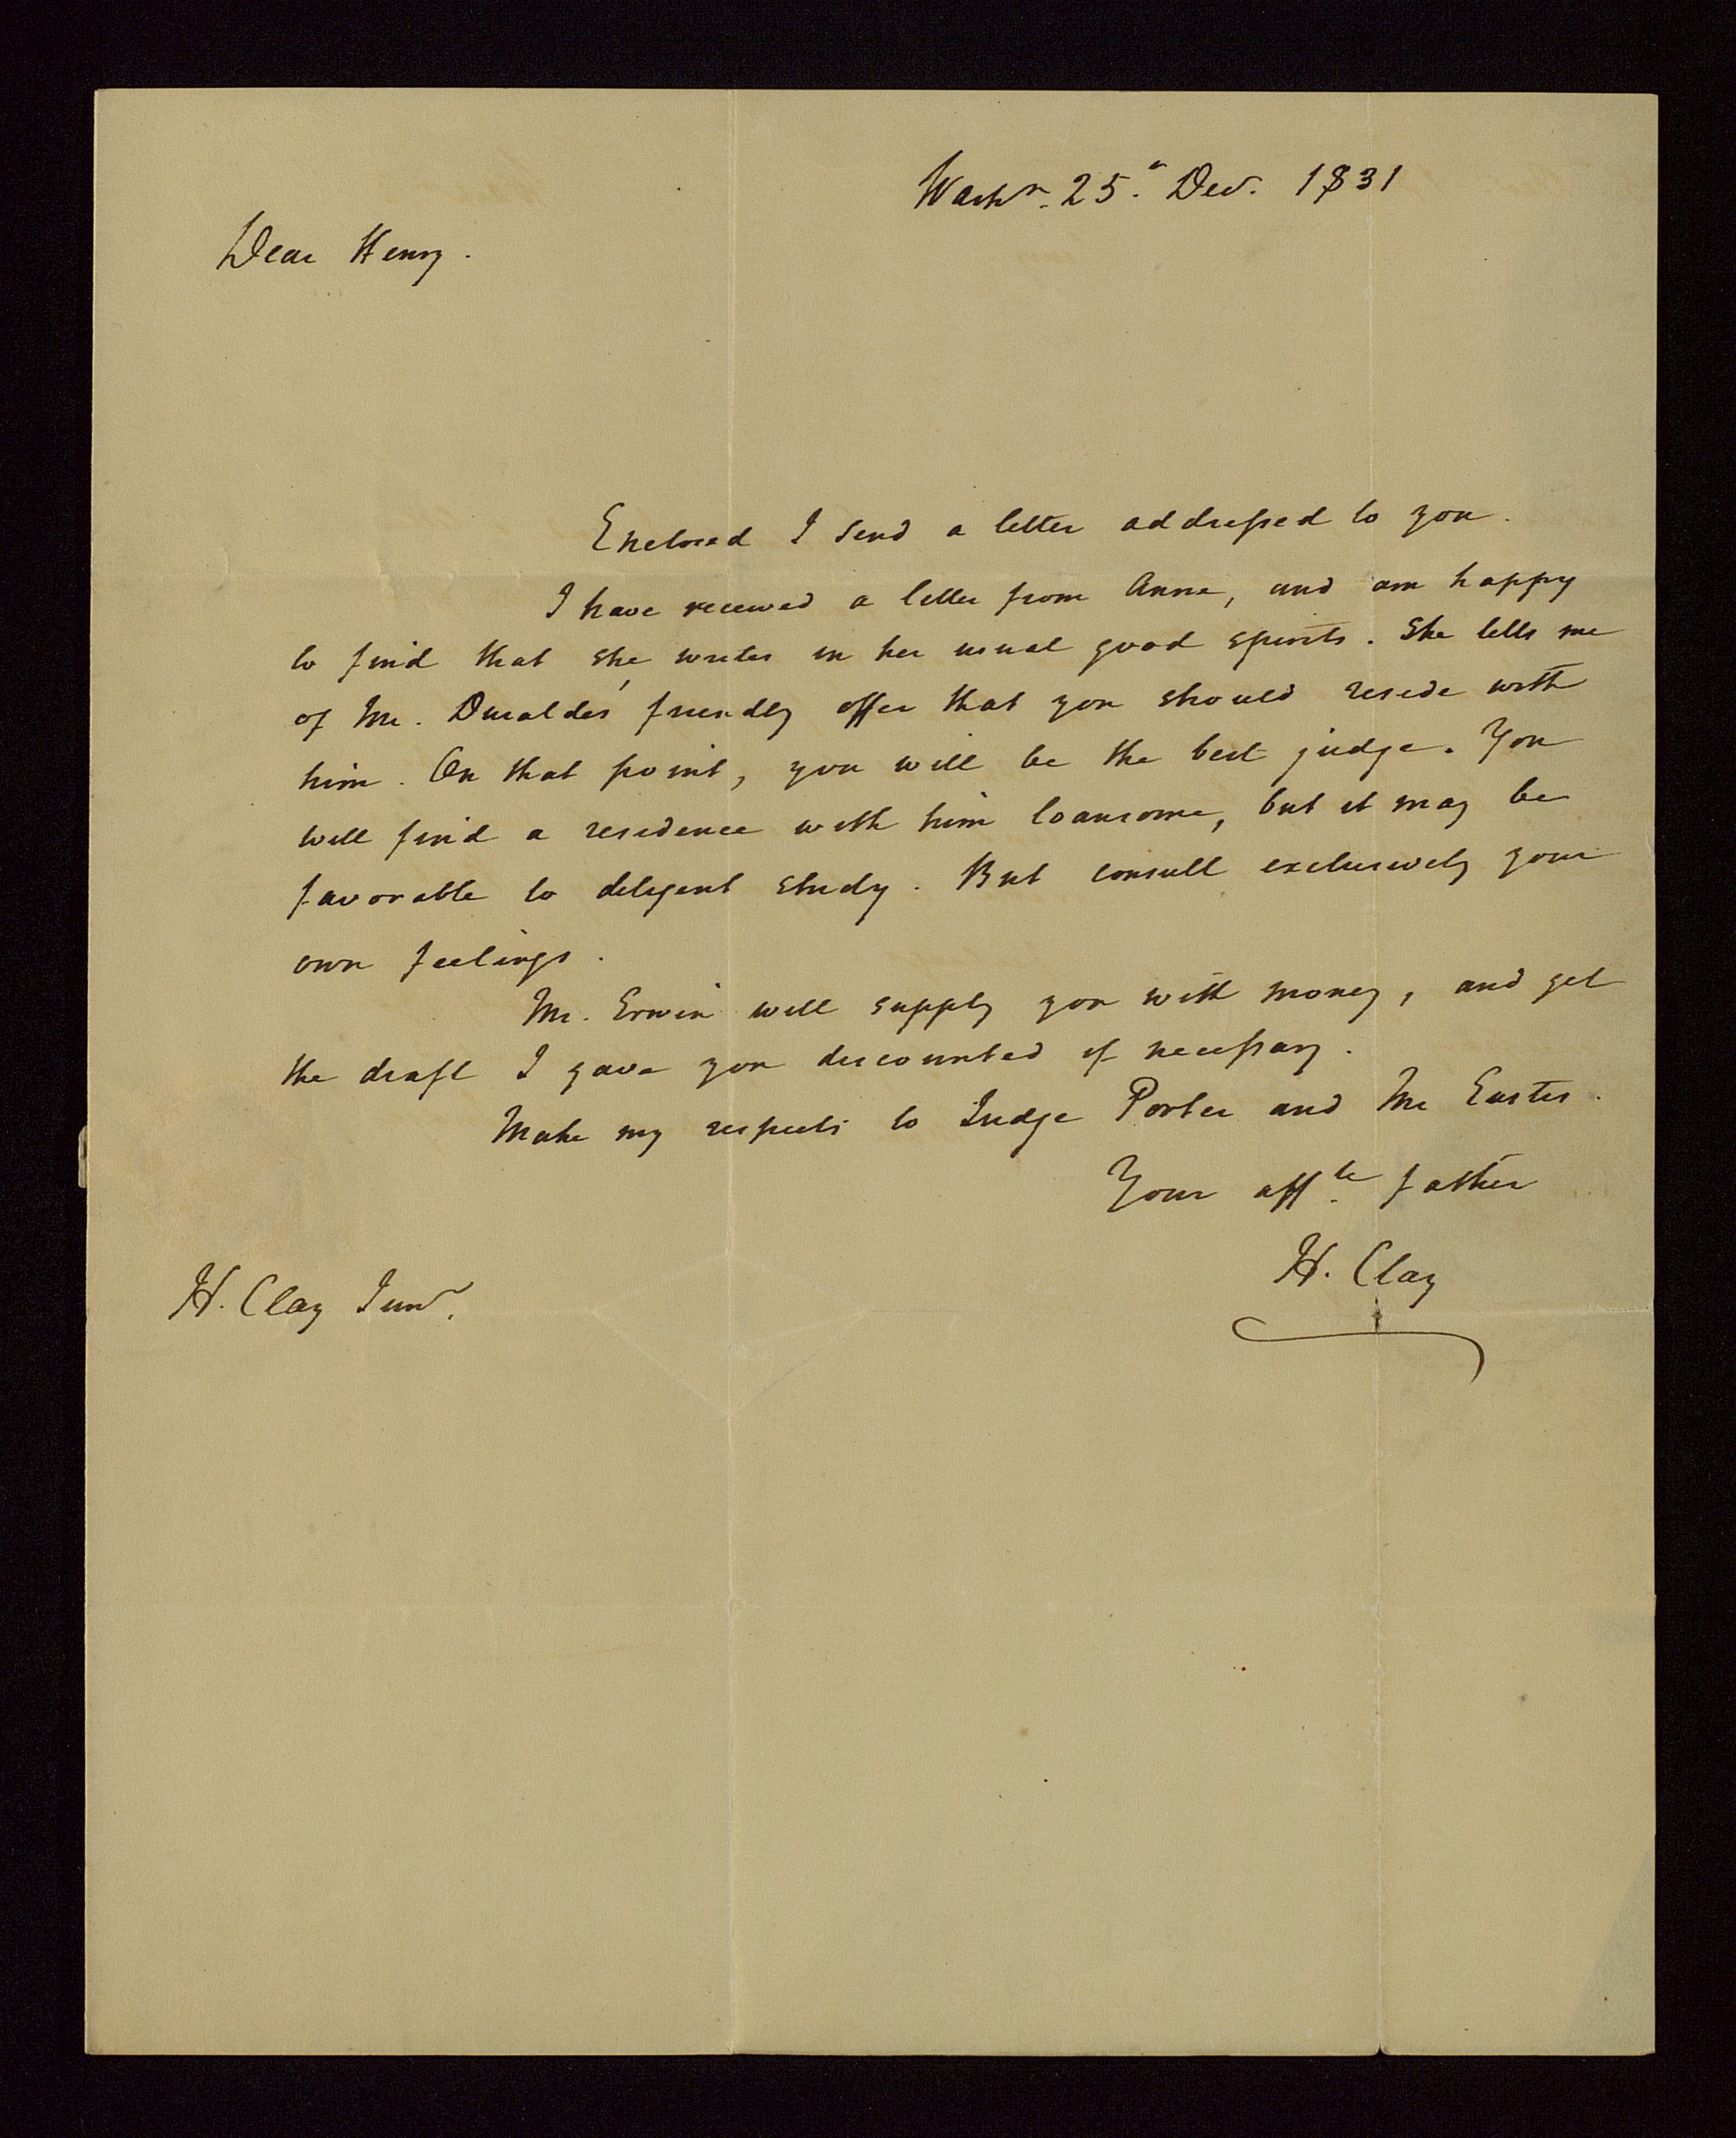 Washn. 25.h Dec. 1831
Dear Henry.
Enclosed I send a letter addressed to you.
I have received a letter from Anne, and am happy
to find that she writes in her usual good spirits. She tells me
of Mr. Duralde's friendly offer that you should reside with
him. On that point, you will be the best judge. You
will find a residence with him loansome, but it may be
favorable to diligent study. But consult exclusively your
own feelings.
Mr. Erwin will supply you with money, and get
the draft I gave you discounted if necessary.
Make my respects to Judge Porter and Mr Eustis.
Your affte. father
H. Clay
H. Clay Junr.